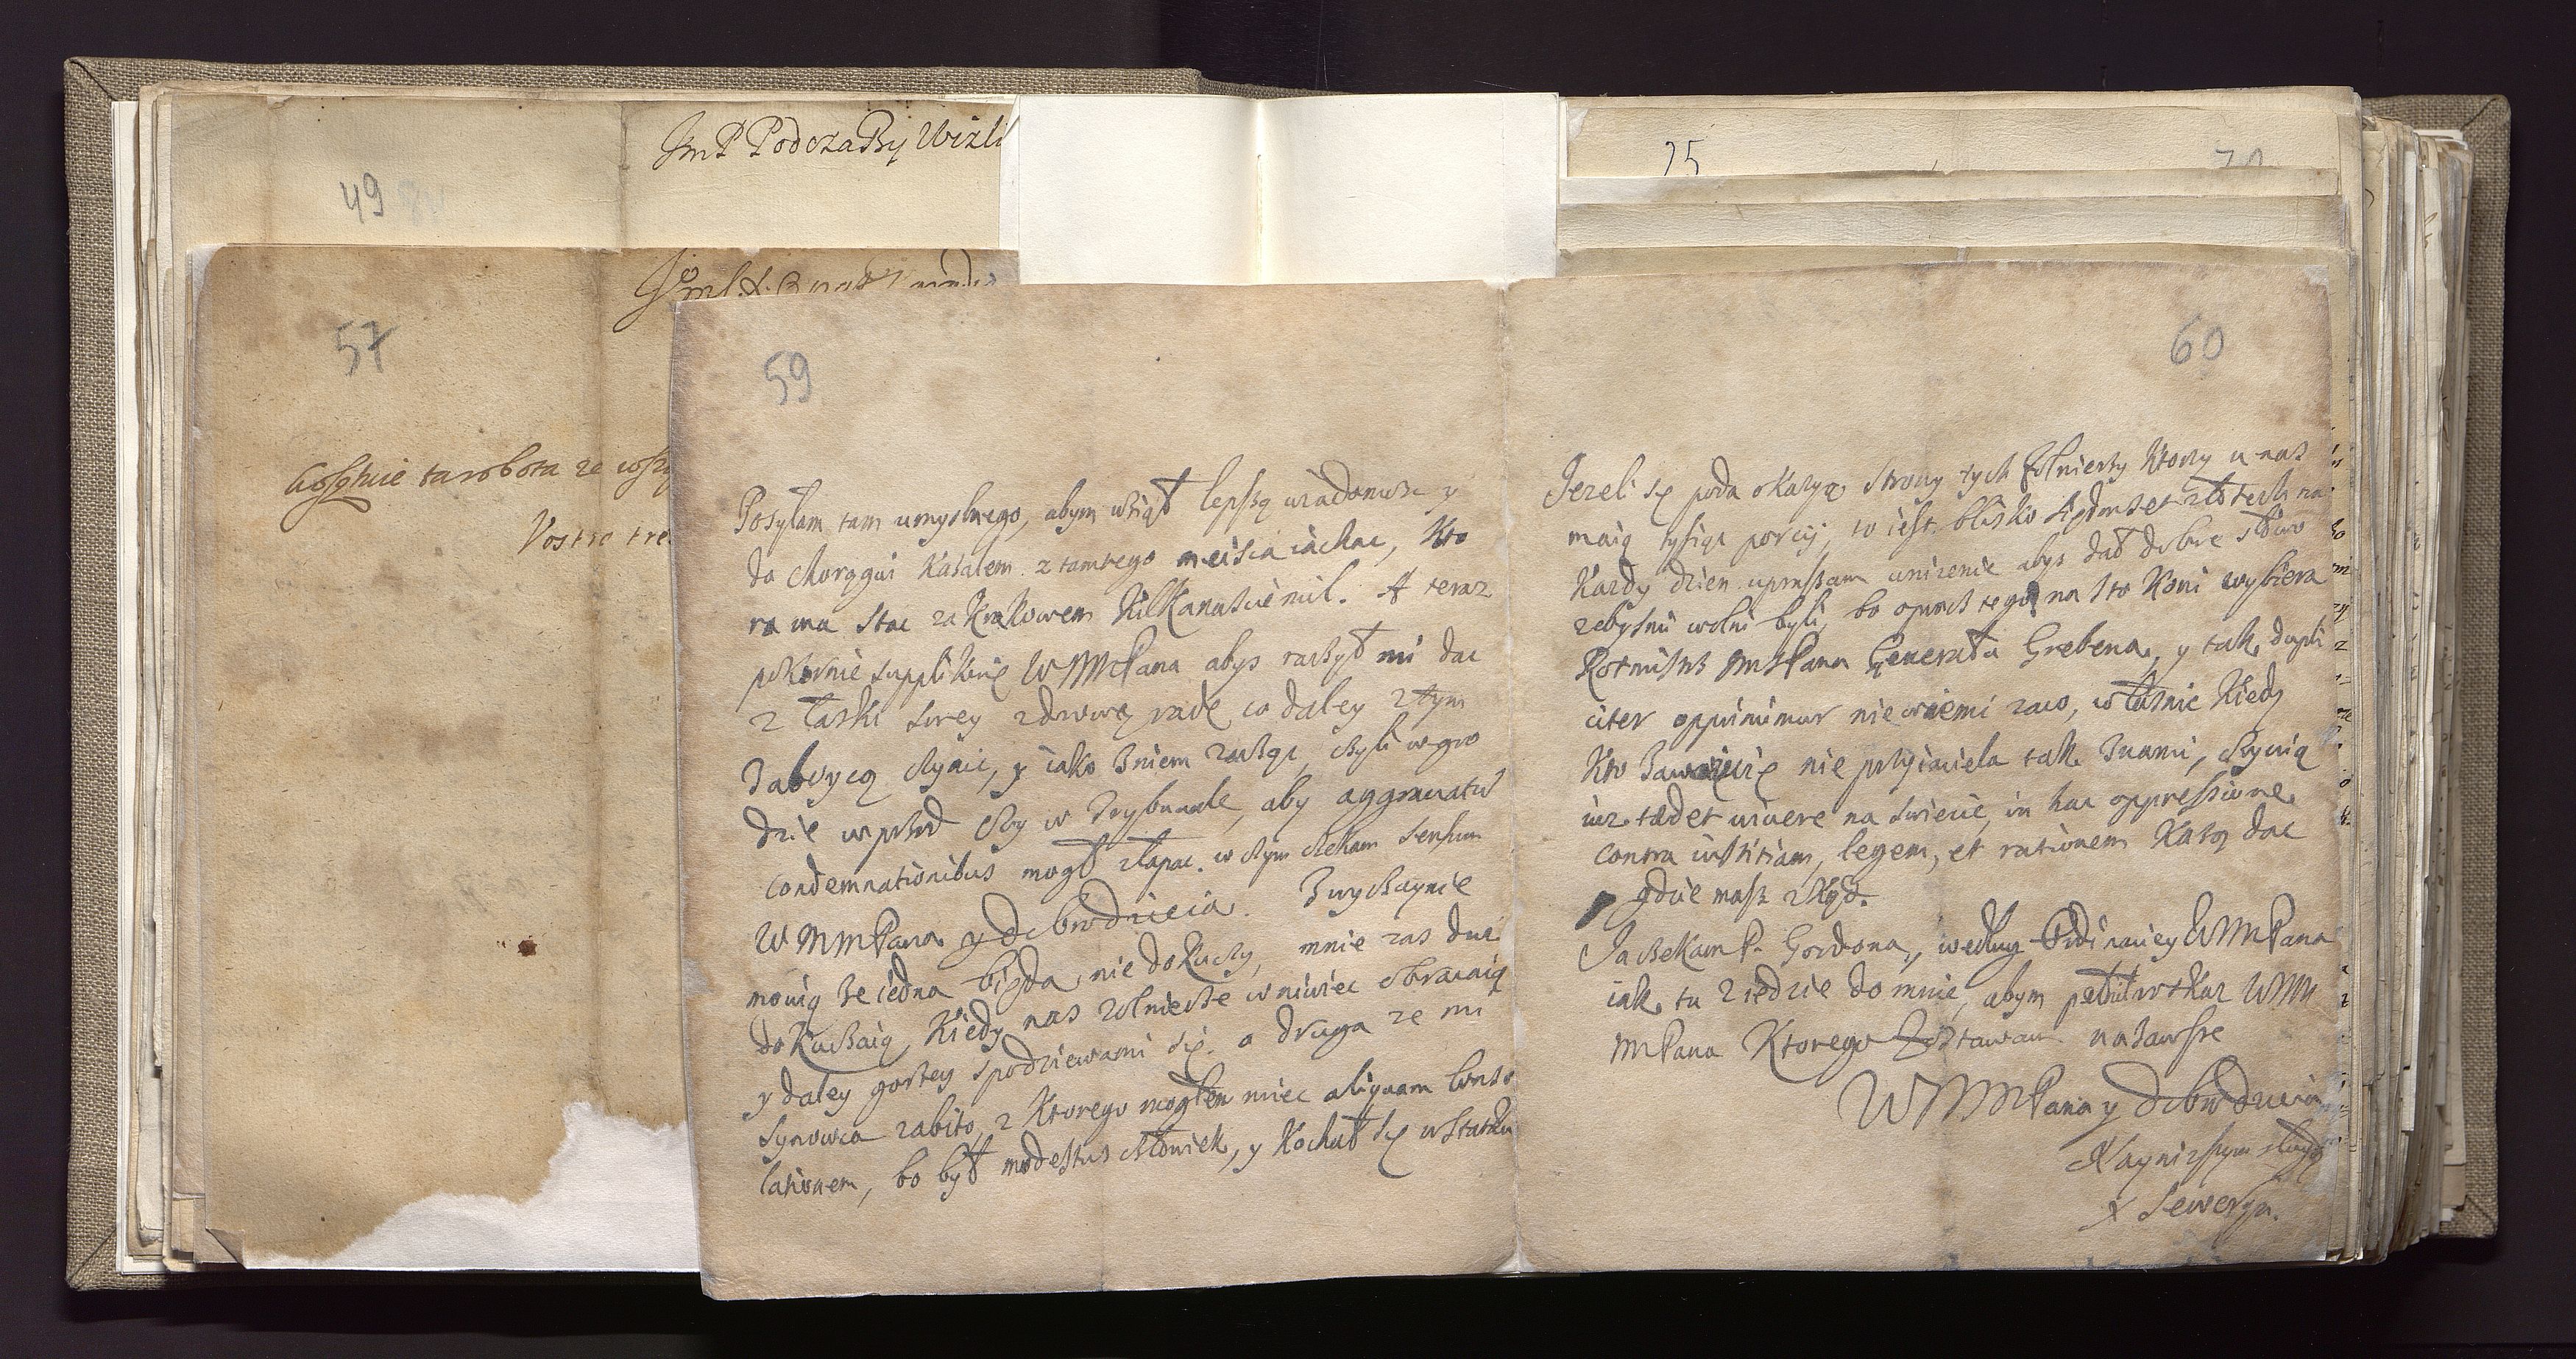 Jm P Podczaszy Wizli
49
57
59
Posyłam tam umyslnego, abym wziął lepszą wiadomosc y
do Chorągwi kazałem z tamtego meisca iachac, kto
ra ma stac za Krakowem kilkanascie mil. A teraz
pokornie supplikuię WMMPana abys raczył mi dac
z łaski swey zdrową radę co daley z tym
zaboycą czynic, y iako z niem zacząc, czyli w gro
dzie wprzod czy w Trybunale, aby aggrauatus
condemnationibus mogł złapac. w czym czekam sensum
WMMPana y dobrodzieia. Zwyczaynie
mowią ze iedna bięda nie dokuczy, mnie zas dwie
dokuczaią, kiedy nas zolnierze wniwiec obracaią
y daley gorszey spodziewami się. a druga ze mi
synowca zabito, z ktorego mogłem miec aliquam conso
lationem, bo był modestus człowiek, y kochał się w statku
75
60
Jezeli się poda okazya strony tych żołnierzy ktorzy u nas
maią tysiąc porcij, to iest blisko siędmset złotech na
kazdy dzien uprasszam unizenie abys dał dobre słowo
zebysmi wolni byli, bo oprocz tego na sto koni wybiera
Rotmistrz JmPana Generała Grebena, y tak dupli
citer opprimimur niewiemi zaco, własnie kiedy
kto zawoiuie nie przyiaciela tak z nami, czynią
iuz tædet uiuere na swiecie, in hac oppressione
contra iustitiam, legem, et rationem kazą dac
gdzie masz zkąd.
Ja czekam P. Gordona, według Ordinaciey WMMPana
iak tu ziedzie do mnie, abym pełnił roskaz WMM
MPana ktorego zostawam nazawsze
WMMPana y dobrodzieia
Nayniszszym sługą
X Seweryn.